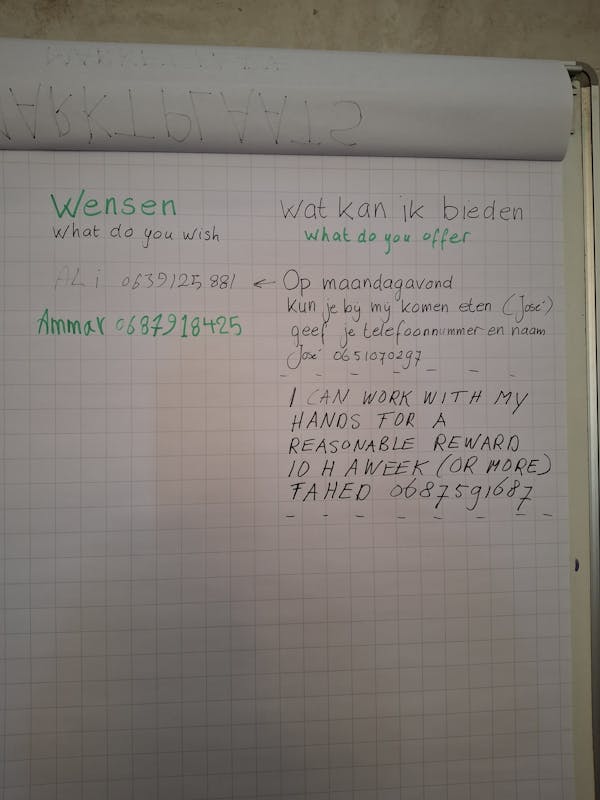 MARKTPLAATS
Wensen
What do you wish
ALi 0639125881 ←
Ammar 0687918425
Wat kan ik bieden
What do you offer
Op maandagavond
kun je bij mij komen eten (José)
geef je telefoonnummer en naam
José 0651070297
I CAN WORK WITH MY
HANDS FOR A
REASONABLE REWARD
10 H A WEEK (OR MORE)
FAHED 0687591687